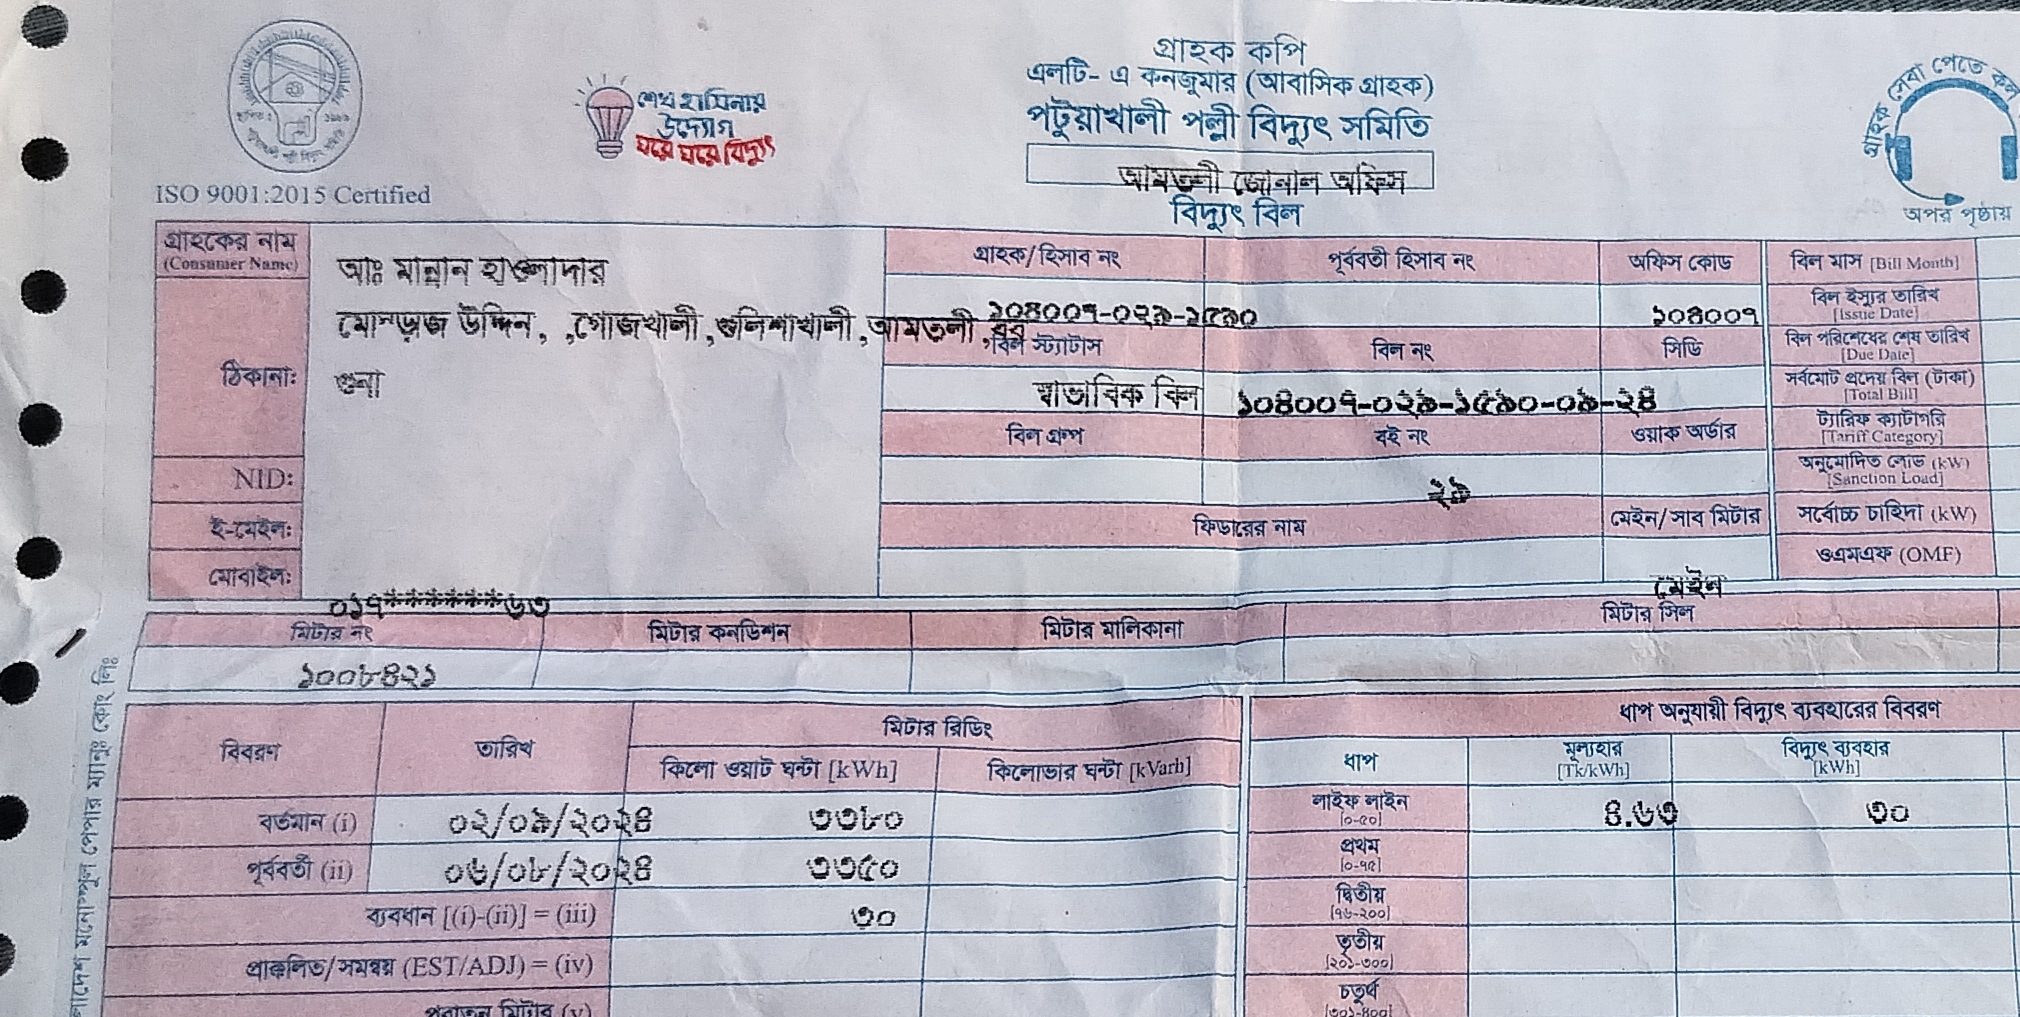 গ্রাহক কপি
এলটি- এ কনজুমার (আবাসিক গ্রাহক)
পটুয়াখালী পল্লী বিদ্যুৎ সমিতি
আমতলী জোনাল অফিস
বিদ্যুৎ বিল
শেখ হাসিনার
উদ্যোগ
ঘরে ঘরে বিদ্যুৎ
ISO 9001:2015 Certified
গ্রাহক সেবা পেতে কল
অপর পৃষ্ঠায়
গ্রাহকের নাম
(Consumer Name)
আঃ মান্নান হাওলাদার
ঠিকানা:
উদ্দিন, ,গোজখালী,গুলিশাখালী,আমতলী,বর
গুনা
NID:
ই-মেইল:
মোবাইল:
০১৭******৬৩
গ্রাহক/হিসাব নং পূর্ববর্তী হিসাব নং অফিস কোড
১০৪০০৭-০২৯-১৫৯০ ১০৪০০৭
বিল স্ট্যাটাস বিল নং সিডি
স্বাভাবিক বিল ১০৪০০৭-০২৯-১৫৯০-০৯-২৪
বিল গ্রুপ বই নং ওয়াক অর্ডার
২৯
ফিডারের নাম মেইন/সাব মিটার
মেইন
বিল মাস [Bill Month]
বিল ইস্যুর তারিখ
[Issue Date]
বিল পরিশোধের শেষ তারিখ
[Due Date]
সর্বমোট প্রদেয় বিল (টাকা)
[Total Bill]
ট্যারিফ ক্যাটাগরি
[Tariff Category]
অনুমোদিত লোড (kW)
[Sanction Load]
সর্বোচ্চ চাহিদা (kW)
ওএমএফ (OMF)
মিটার নং মিটার কনডিশন মিটার মালিকানা মিটার সিল
১০০৮৪২১
বিবরণ তারিখ মিটার রিডিং
কিলো ওয়াট ঘন্টা [kWh] কিলোভার ঘন্টা [kVarh]
বর্তমান (i) ০২/০৯/২০২৪ ৩৩৮০
পূর্ববর্তী (ii) ০৬/০৮/২০২৪ ৩৩৫০
ব্যবধান [(i)-(ii)] = (iii) ৩০
প্রাক্কলিত/সমন্বয় (EST/ADJ) = (iv)
পুরাতন মিটার (v)
ধাপ অনুযায়ী বিদ্যুৎ ব্যবহারের বিবরণ
ধাপ মূল্যহার [Tk/kWh] বিদ্যুৎ ব্যবহার [kWh]
লাইফ লাইন [০-৫০] ৪.৬৩ ৩০
প্রথম [০-৭৫]
দ্বিতীয় [৭৬-২০০]
তৃতীয় [২০১-৩০০]
চতুর্থ [৩০১-৪০০]